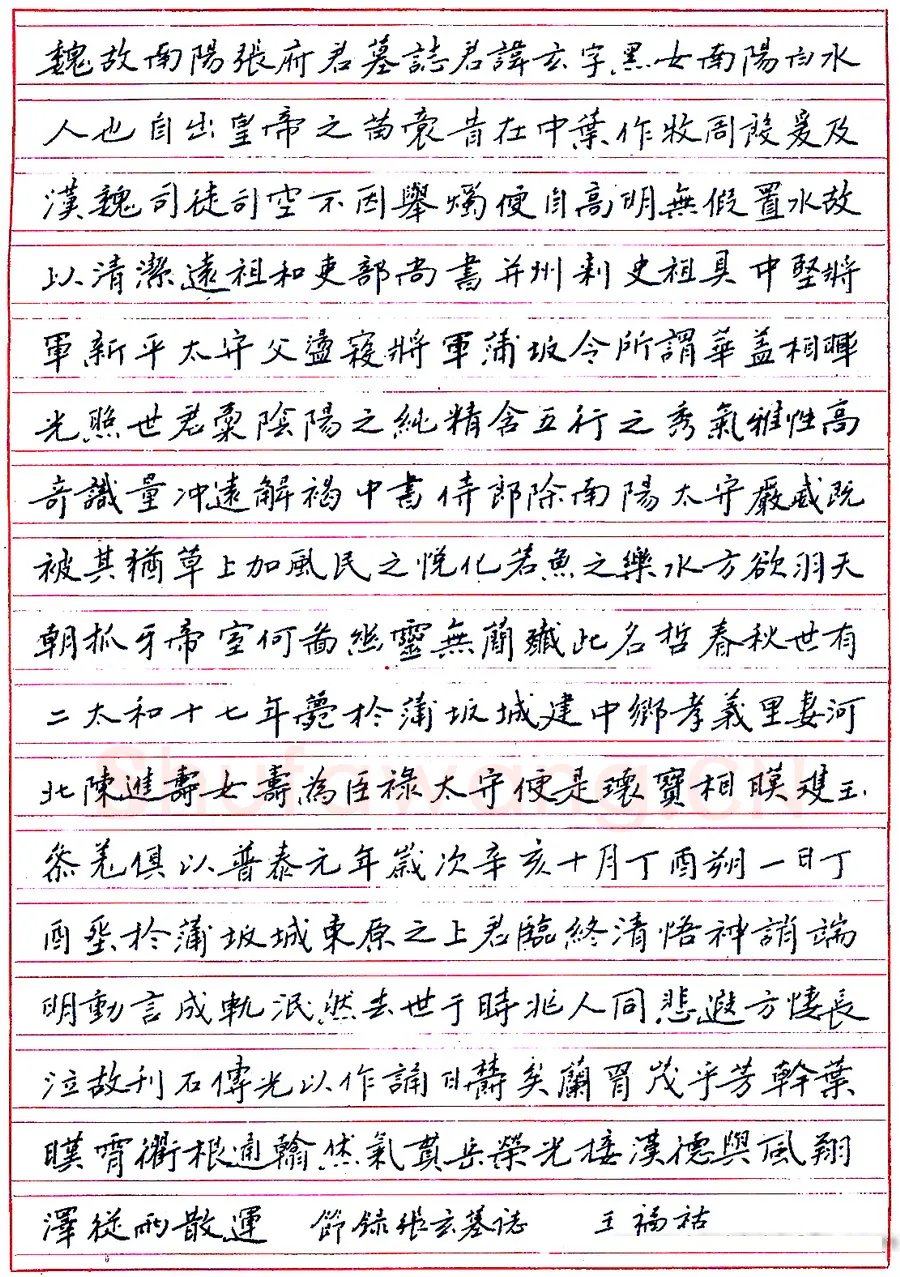 魏故南陽張府君墓誌君諱玄字黑女南陽白水
人也自出皇帝之苗裔昔在中葉作牧周殷爰及
漢魏司徒司空不因舉燭便自高明無假置水故
以清潔遠祖和吏部尚書并州刺史祖具中堅將
軍新平太守父盪寇將軍蒲坂令所謂華盖相暉
光照世君稟陰陽之純精含五行之秀氣雅性高
奇識量冲遠解褐中書侍郎除南陽太守嚴威既
被其猶草上加風民之悅化若魚之樂水方欲羽天
朝抓牙帝室何啚幽靈無簡殲此名哲春秋世有
二太和十七年薨於蒲坂城建中鄉孝義里妻河
北陳進壽女壽為臣祿太守便是瓌寶相暎瓊玉
叅差俱以普泰元年歲次辛亥十月丁酉朔一日丁
酉塟於蒲坂城東原之上君臨終清悟神誚端
明動言成軌泯然去世于時兆人同悲遐方悽長
泣故刊石傳光以作誦曰欝矣蘭冑茂乎芳幹葉
暎霄衢根通輸然氣貫岳榮光接漢德與風翔
澤從雨散運 節録張玄墓誌 王福祜
Shufawang.CN